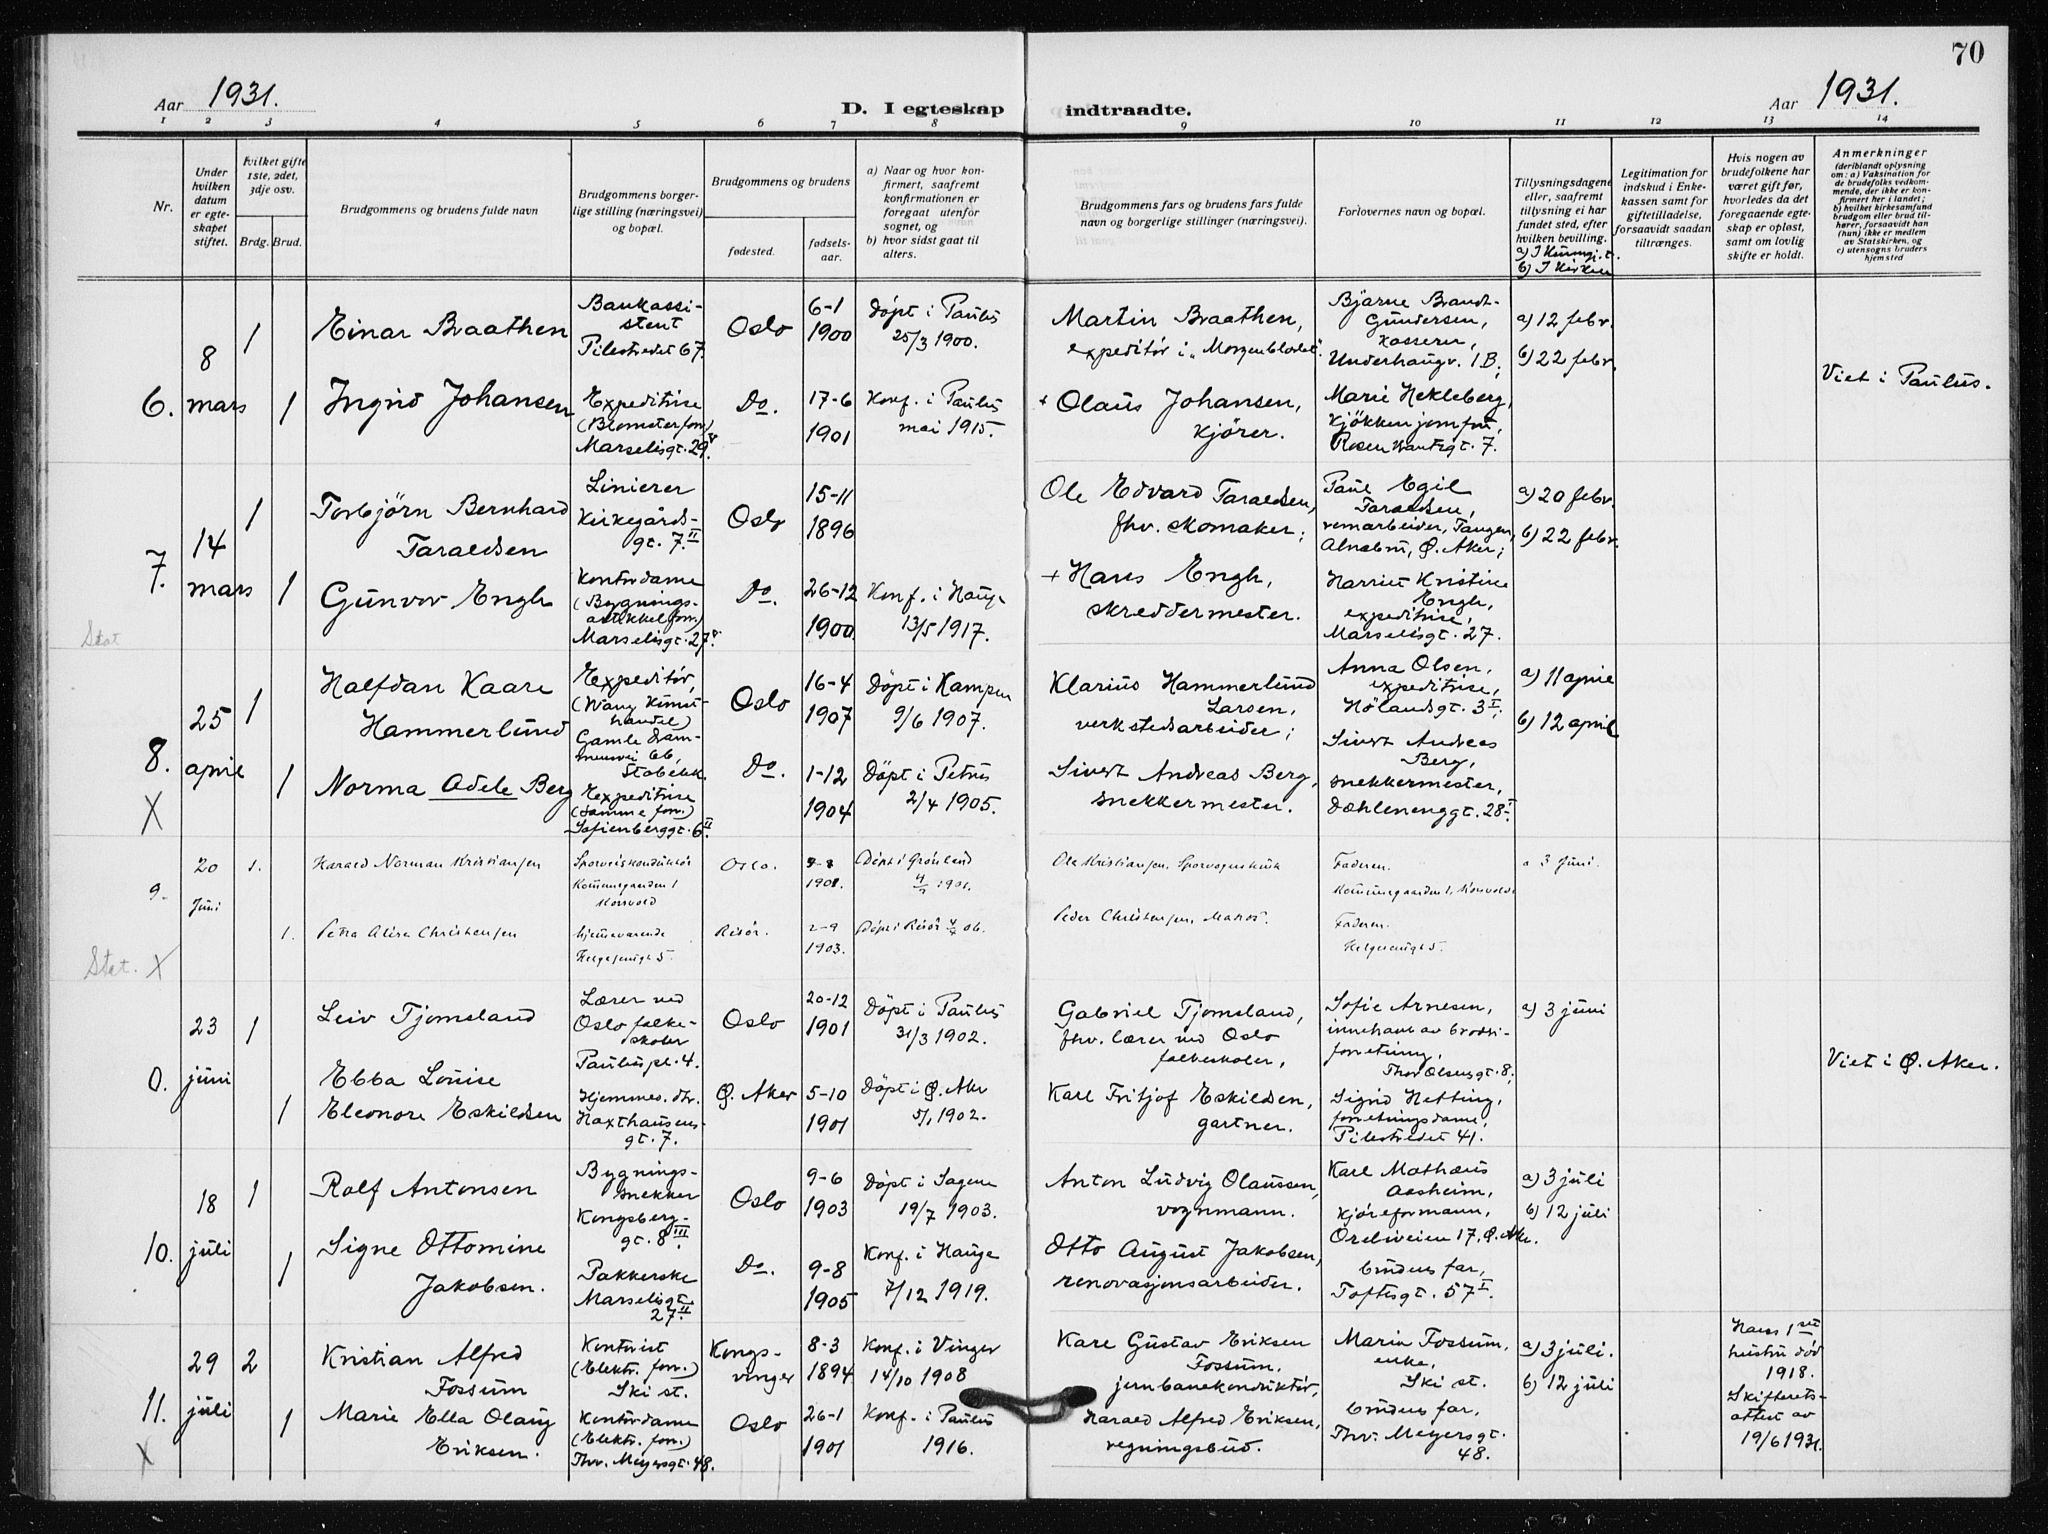 70
Aar 1931.
D. I egteskap indtraadte.
Aar 1931.
1 2 3 4 5 6 7 8 9 10 11 12 13 14
Nr.
Under hvilken datum er egteskapet stiftet.
Hvilket gifte 1ste, 2det, 3dje osv.
Brdg. Brud.
Brudgommens og brudens fulde navn
Brudgommens borgerlige stilling (næringsvei) og bopæl.
Brudgommens og brudens
fødested.
fødselsaar.
a) Naar og hvor konfirmert, saafremt konfirmationen er foregaat utenfor sognet, og
b) hvor sidst gaat til alters.
Brudgommens fars og brudens fars fulde navn og borgerlige stillinger (næringsvei).
Forlovernes navn og bopæl.
Tillysningsdagene eller, saafremt tillysning ei har fundet sted, efter hvilken bevilling.
b) I Kirken
Legitimation for indskud i Enkekassen samt for giftetilladelse, forsaavidt saadan tiltrænges.
Hvis nogen av brudefolkene har været gift før, hvorledes da det foregaaende egteskap er opløst, samt om lovlig skifte er holdt.
Anmerkninger
(deriblandt oplysning om: a) Vaksination for de brudefolks vedkommende, der ikke er konfirmert her i landet; b) hvilket kirkesamfund brudgom eller brud tilhører, forsaavidt han (hun) ikke er medlem av Statskirken, og c) utensogns bruders hjemsted
6. 8 mars
1 Einar Braathen
Bankassistent
Pilestredet 67.
Oslo
6-1 1900
Døpt i Paulus
25/3 1900.
Martin Braathen,
expeditør i "Morgenbladet".
Bjarne Brandt-
Gundersen,
kasserer,
Underhaugv. 1B;
a) 12 febr.
b) 22 febr.
1 Ingrid Johansen
Expeditrise
(Blomsterforr.)
Marselisgt. 29
Do.
17-6 1901
Konf. i Paulus
mai 1915.
+ Olaus Johansen,
kjører.
Marie Hekleberg,
kjøkkenjomfru,
Rosenkrantzgt. 7.
Viet i Paulus.
7. 14 mars
1 Torbjörn Bernhard
Taraldsen
Linierer
Kirkegårds-
gt. 7 II
Oslo
15-11 1896
Ole Edvard Taraldsen,
fhv. skomaker;
Paul Egil
Taraldsen,
remarbeider, Tangen,
Alnabru, Ø. Aker;
a) 20 febr.
b) 22 febr.
1 Gunvor Engh
Kontordame
(Bygnings-
artikkelforr.)
Marselisgt. 27
Do.
26-12 1900
Konf. i Hauge
13/5 1917.
+ Hans Engh,
skreddermester.
Harriet Kristine
Engh,
expeditrise,
Marselisgt. 27.
Stat
8. 25 april
X
1 Halfdan Kaare
Hammerlund
Expeditør,
(Wang Kunst-
handel)
Gamle Dram-
mensvei 66,
Stabekk.
Oslo
16-4 1907
Døpt i Kampen
9/6 1907.
Klarius Hammerlund
Larsen,
verkstedsarbeider;
Anna Olsen,
expeditrise,
Hölandsgt. 3 I;
a) 11 april
b) 12 april
1 Norma Adele Berg
Expeditrise
(Samme forr.)
Sofienberggt. 6 II
Do.
1-12 1904
Døpt i Petrus
2/4 1905.
Sivert Andreas Berg,
snekkermester.
Sivert Andreas
Berg,
snekkermester,
Dæhlenenggt. 28 I
9. 20 Juni
Stat. X
1. Harald Norman Kristiansen
Sporveiskonduktør
Kommunegaarden 1
Korsvold
Oslo.
Døpt i Grønland
Ole Kristiansen,
Faderen.
Kommunegaarden 1, Korsvold
a 3 Juni.
1. Petra Alise Christensen
hjemmeværende
Helgesensgt 5.
Risör.
2-9 1903.
Døpt i Risör
Peder Christensen, Matros.
Faderen.
Helgesensgt 5.
0. 23 juni
1 Leiv Tjomsland
Lærer ved
Oslo folke-
skoler
Pauluspl. 4.
Oslo
20-12 1901
Døpt i Paulus
31/3 1902.
Gabriel Tjomsland,
fhv. lærer ved Oslo
folkeskoler,
Sofie Arnesen,
innehaver av brød-
forretning,
Thor Olsensgt. 8;
a) 3 juni
1 Ebba Louise
Eleonore Eskildsen
Hjemmev. dtr.
Haxthausens-
gt. 7.
Ø. Aker
5-10 1901
Døpt i Ø. Aker
5/1 1902.
Karl Fritjof Eskildsen,
gartner.
Sigrid Hetting,
forretningsdame,
Pilestredet 41.
Viet i Ø. Aker.
10. 18 juli
1 Rolf Antonsen
Bygnings-
snekker
Kongsberg-
gt. 8 III
Oslo
9-6 1903
Døpt i Sagene
19/7 1903.
Anton Ludvig Olaussen,
vognmann.
Karl Mathæus
Aasheim,
kjøreformann,
Orebveien 17, Ø. Aker.
a) 3 juli
b) 12 juli
1 Signe Ottomine
Jakobsen.
Pakkerske
Marselisgt.
27 II
Do.
9-8 1905
Konf. i Hauge
7/12 1919.
Otto August Jakobsen,
renovasjonsarbeider.
brudens far,
Toftesgt. 57 I.
11. 29 juli
X
2 Kristian Alfred
Fossum
Kontorist
(Elektr. forr.)
Ski st.
Kongs-
vinger
8-3 1894
Konf. i Vinger
14/10 1908
Karl Gustav Eriksen
Fossum,
jernbanekonduktør,
Maria Fossum,
enke,
Ski st.
a) 3 juli.
b) 12 juli
Hans 1ste
hustru død
1918.
Skifteretts-
attest av
19/6 1931.
1 Marie Ella Olaug
Eriksen.
Kontordame
(Elektr. forr.)
Thv. Meyersgt. 48.
Oslo
26-1 1901
Konf. i Paulus
1916.
Harald Alfred Eriksen,
regningsbud.
brudens far,
Thv. Meyersgt.
48.